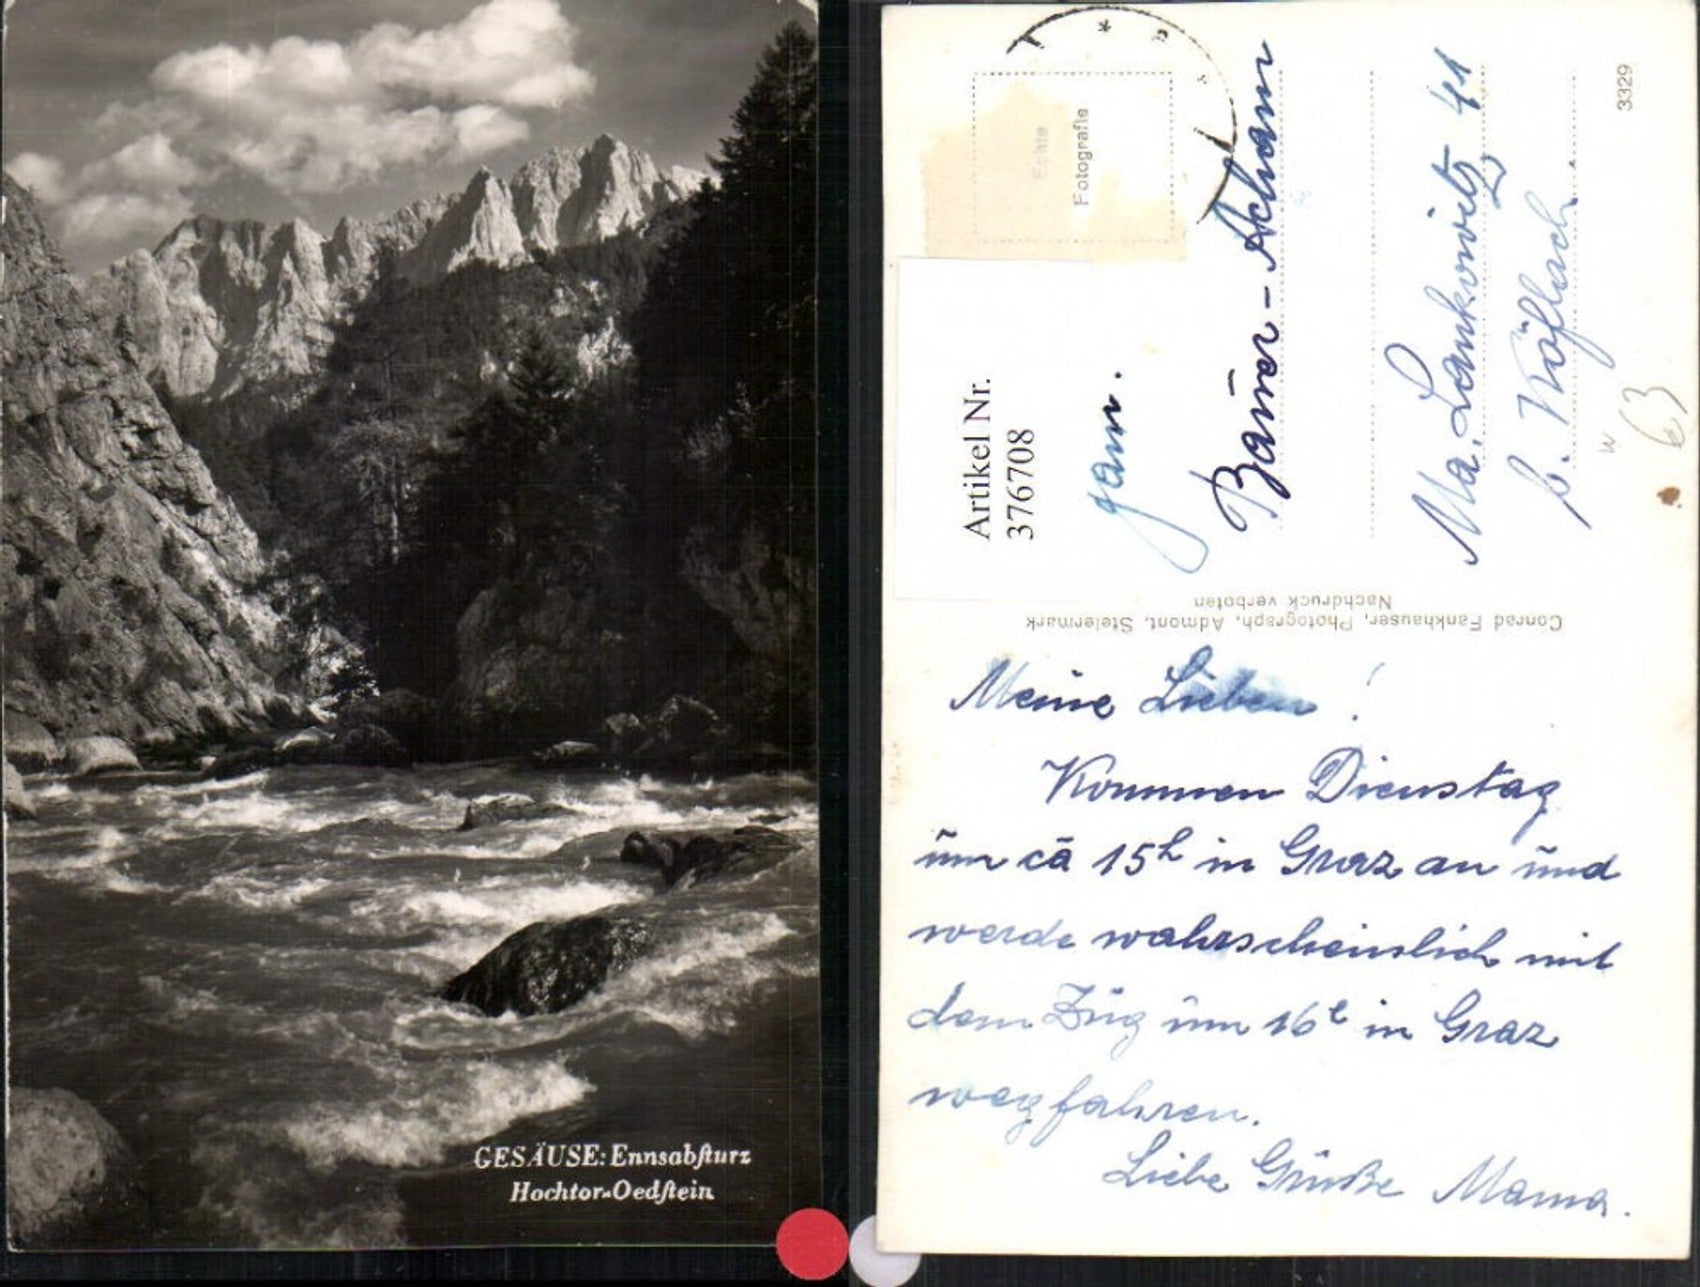 GESÄUSE: Ennsabsturz
Hochtor-Oedstein
Echte
Fotografie
Artikel Nr.
376708
Bauer - Acham
Ma. Lankowitz 41
b. Köflach.
3329
63
Conrad Fankhauser, Photograph, Admont, Steiermark
Nachdruck verboten
Meine Lieben!
Kommen Dienstag
um ca 15h in Graz an und
werde wahrscheinlich mit
dem Zug um 16 in Graz
wegfahren.
Liebe Grüße Mama.